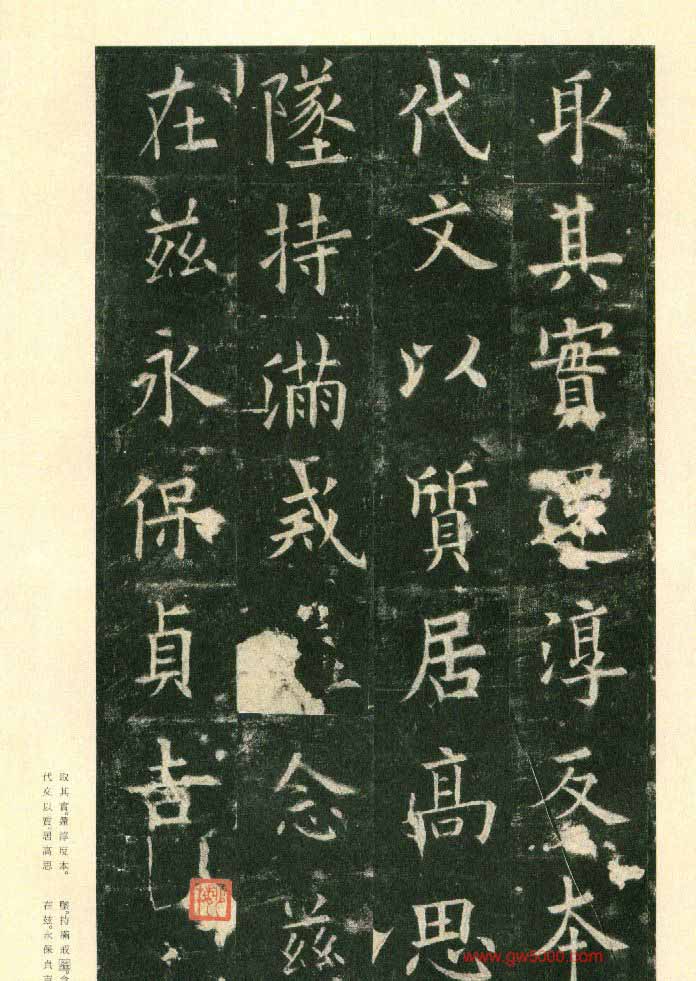 取其實還淳反本
代文以質居髙思
墜持滿戒念兹
在兹永保貞吉
取其實。還淳反本。
代文以質。居高思
墜。持滿戒溢。念
在兹。永保貞吉
www.gw5000.com